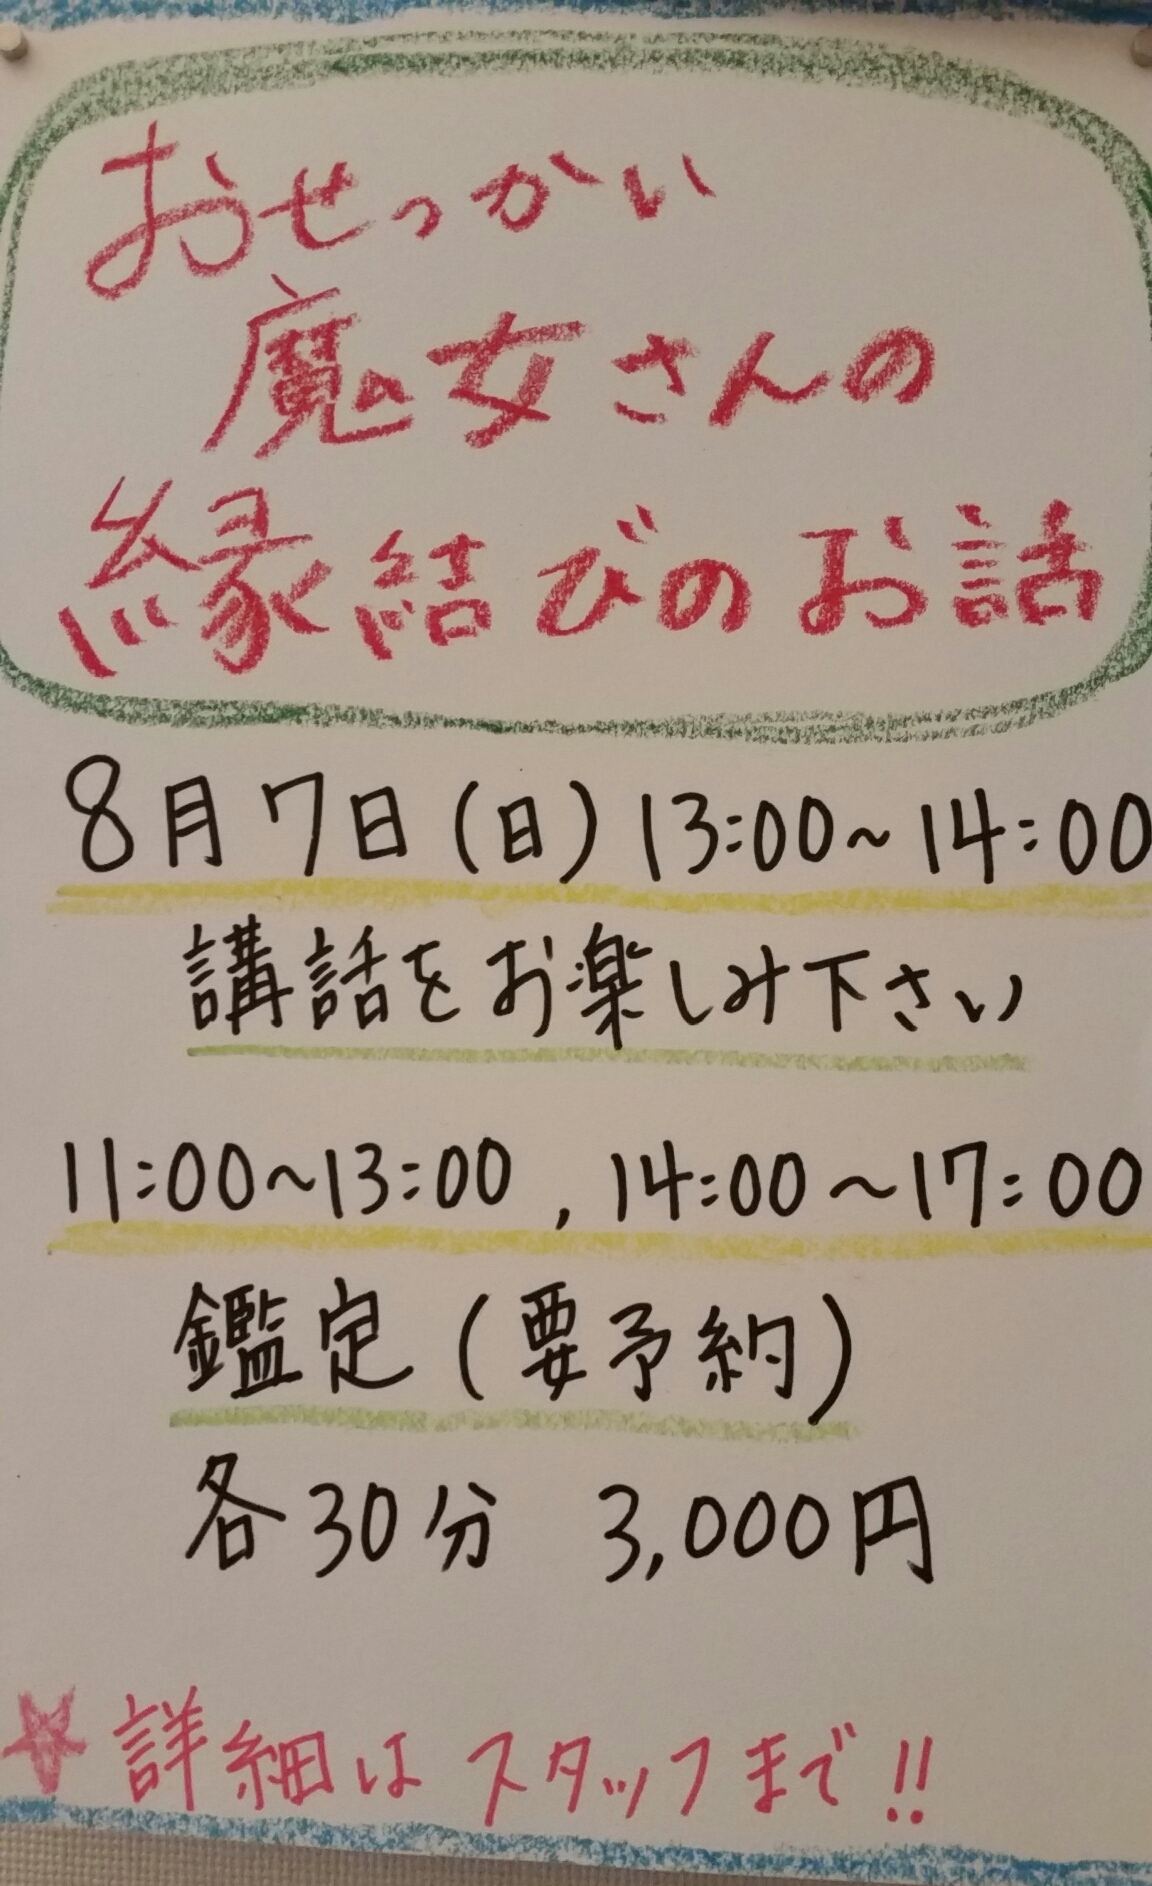 おせっかい
魔女さんの
縁結びのお話
8月7日(日)13:00~14:00
講話をお楽しみ下さい
11:00~13:00,14:00~17:00
鑑定(要予約)
各30分 3,000円
★詳細はスタッフまで!!